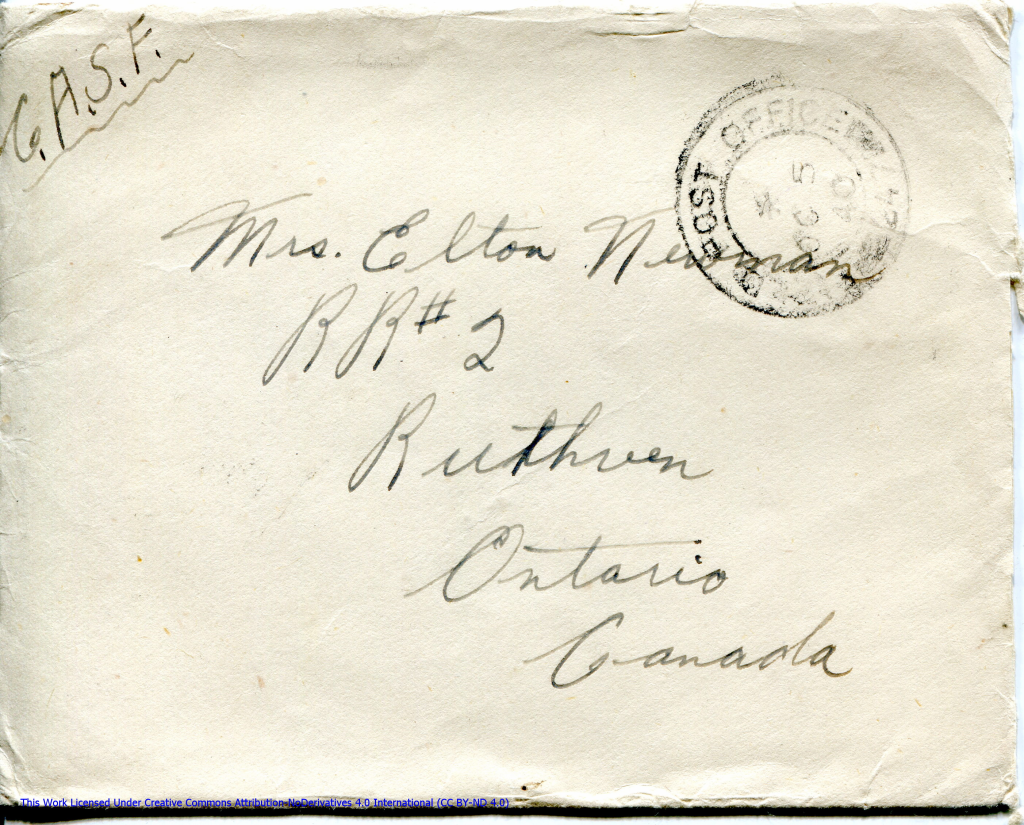 C.A.S.F.
POST OFFICE
OC 5
40
Mrs. Elton Newman
RR# 2
Ruthven
Ontario
Canada
This Work Licensed Under Creative Commons Attribution-NoDerivatives 4.0 International (CC BY-ND 4.0)